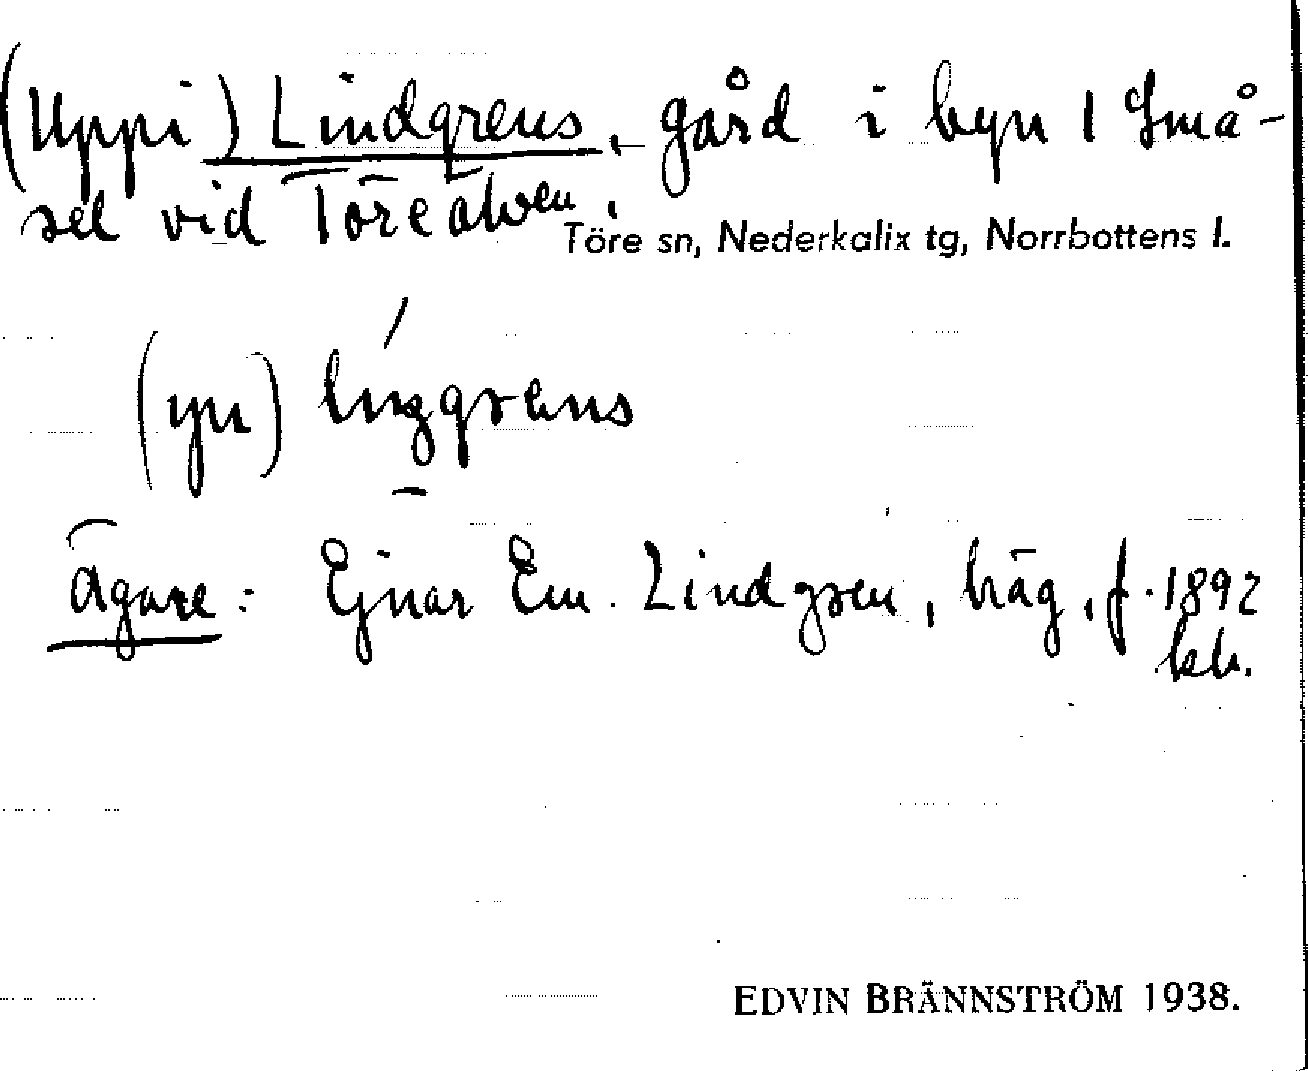 (Uppi) Lindgrens, gård i byn 1 Små-
sel vid Töreälven.
Töre sn, Nederkalix tg, Norrbottens l.
(yn)
Ägare: Ejnar Em. Lindgren, häg, f. 1892
EDVIN BRÄNNSTRÖM 1938.